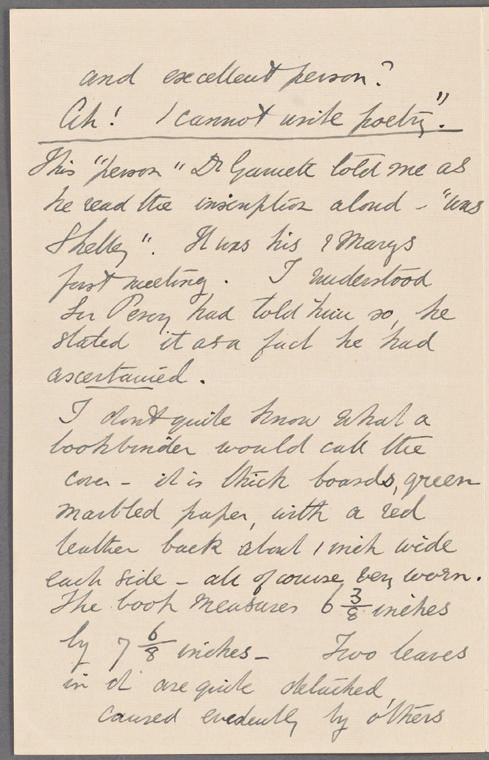 and excellent person?
Ah! I cannot write poetry".
This "person" Dr Garnett told me as
he read the inscription aloud - "was
Shelley". It was his & Marys
first meeting. I understood
Sir Percy had told him so, he
stated it as a fact he had
ascertained.
I don't quite know what a
bookbinder would call the
cover - it is thick boards, green
marbled paper, with a red
leather back about 1 inch wide
each side - all of course very worn.
The book measures 6 3/8 inches
by 7 6/8 inches - Two leaves
in it are quite detached,
caused evidently by others